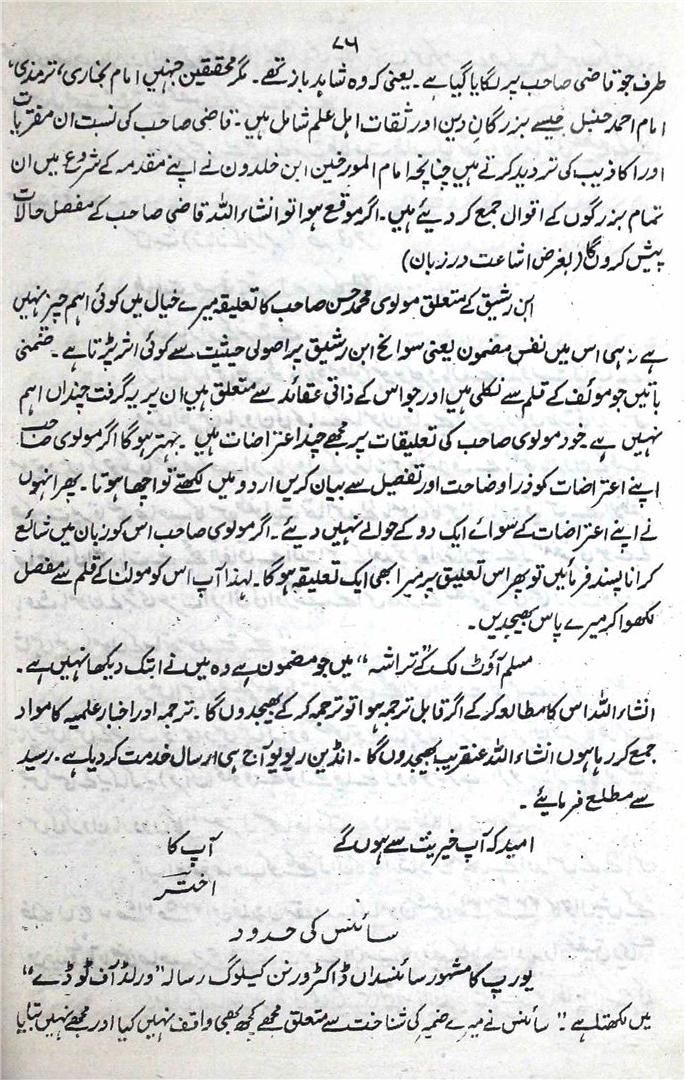 ۷۸۶
طرف جو قاضی صاحب پر لگایا گیا ہے ۔ یعنی کہ وہ شاہد باز تھے ۔ مگر محققین جنہیں امام بخاری، ترمذی،
امام احمد حنبل جیسے بزرگان دین اور ثقات اہل علم شامل ہیں ۔ قاضی صاحب کی نسبت ان مفتریات
اور اکاذیب کی تردید کرتے ہیں چنانچہ امام المورخین ابن خلدون نے اپنے مقدمہ کے شروع میں ان
تمام بزرگوں کے اقوال جمع کر دیئے ہیں ۔ اگر موقع ہوا تو انشاء اللہ قاضی صاحب کے مفصل حالات
پیش کروں گا (بغرض اشاعت در زبان)
ابن رشیق کے متعلق مولوی محمد حسن صاحب کا تعلیقہ میرے خیال میں کوئی اہم چیز نہیں
ہے نہ ہی اس میں نفس مضمون یعنی سوانح ابن رشیق پر اصولی حیثیت سے کوئی اثر پڑتا ہے ۔ ضمنی
باتیں جو مولف کے قلم سے نکلی ہیں اور جو اس کے ذاتی عقائد سے متعلق ہیں ان پر یہ گرفت چنداں اہم
نہیں ہے ۔ خود مولوی صاحب کی تعلیقات پر مجھے چند اعتراضات ہیں ۔ بہتر ہوگا اگر مولوی صاحب
اپنے اعتراضات کو ذرا وضاحت اور تفصیل سے بیان کریں اردو میں لکھتے تو اچھا ہوتا ۔ پھر انہوں
نے اپنے اعتراضات کے سوائے ایک دو کے حوالے نہیں دیئے ۔ اگر مولوی صاحب اس کو زبان میں شائع
کرانا پسند فرمائیں تو پھر اس تعلیق پر میرا بھی ایک تعلیقہ ہوگا ۔ لہذا آپ اس کو مولٰنا کے قلم سے مفصل
لکھوا کر میرے پاس بھیجدیں ۔
مسلم آؤٹ لک کے "تراشہ" میں جو مضمون ہے وہ میں نے ابتک دیکھا نہیں ہے ۔
انشاء اللہ اس کا مطالعہ کر کے اگر قابل ترجمہ ہوا تو ترجمہ کر کے بھیجدوں گا ۔ ترجمہ اور اخبار علمیہ کا مواد
جمع کر رہا ہوں انشاء اللہ عنقریب بھیجدوں گا ۔ انڈین ریویو آج ہی ارسال خدمت کر دیا ہے ۔ رسید
سے مطلع فرمائیے ۔
امید کہ آپ خیریت سے ہوں گے آپ کا
اختر
سائنس کی حدود
یورپ کا مشہور سائنسداں ڈاکٹر ورنن کیلوگ رسالہ "ورلڈ آف ٹو ڈے"
میں لکھتا ہے ۔ "سائنس نے میرے ضمیر کی شناخت سے متعلق مجھے کچھ بھی واقف نہیں کیا اور مجھے نہیں بتایا